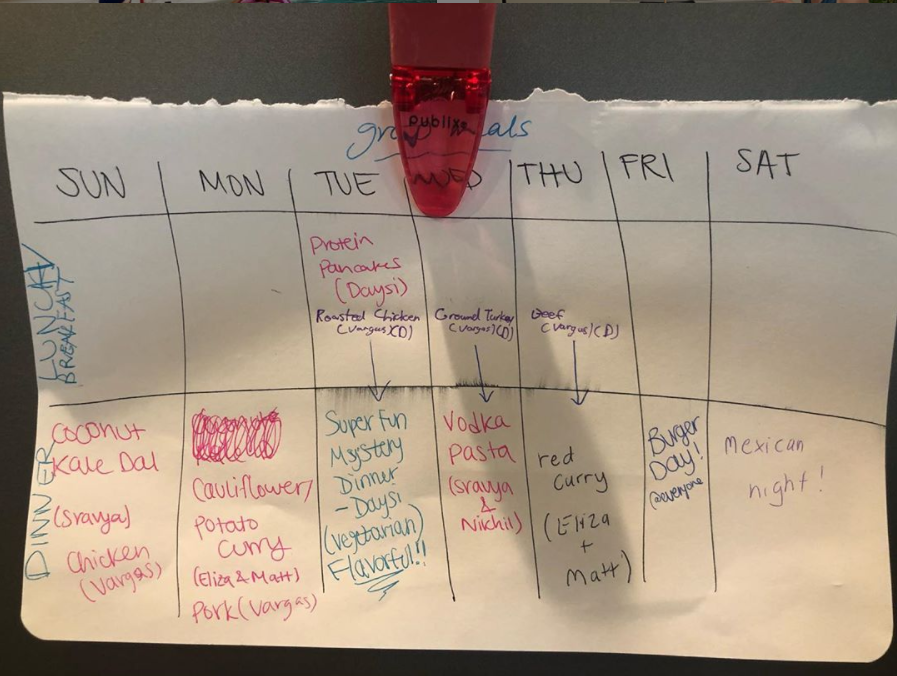 group meals
Publix
SUN MON TUE WED THU FRI SAT
LUNCH/
BREAKFAST
Protein
Pancakes
(Daysi)
Roasted Chicken
(Vargas)(D)
Ground Turkey
(Vargas)(D)
Beef
(Vargas)(D)
DINNER
Coconut
Kale Dal
(Sravya)
Chicken
(Vargas)
Cauliflower/
Potato
Curry
(Eliza & Matt)
Pork (Vargas)
Super Fun
Mystery
Dinner
- Daysi
(Vegetarian)
Flavorful!!
Vodka
Pasta
(Sravya
&
Nikhil)
red
Curry
(Eliza
+
Matt)
Burger
Day!
@everyone
Mexican
night!